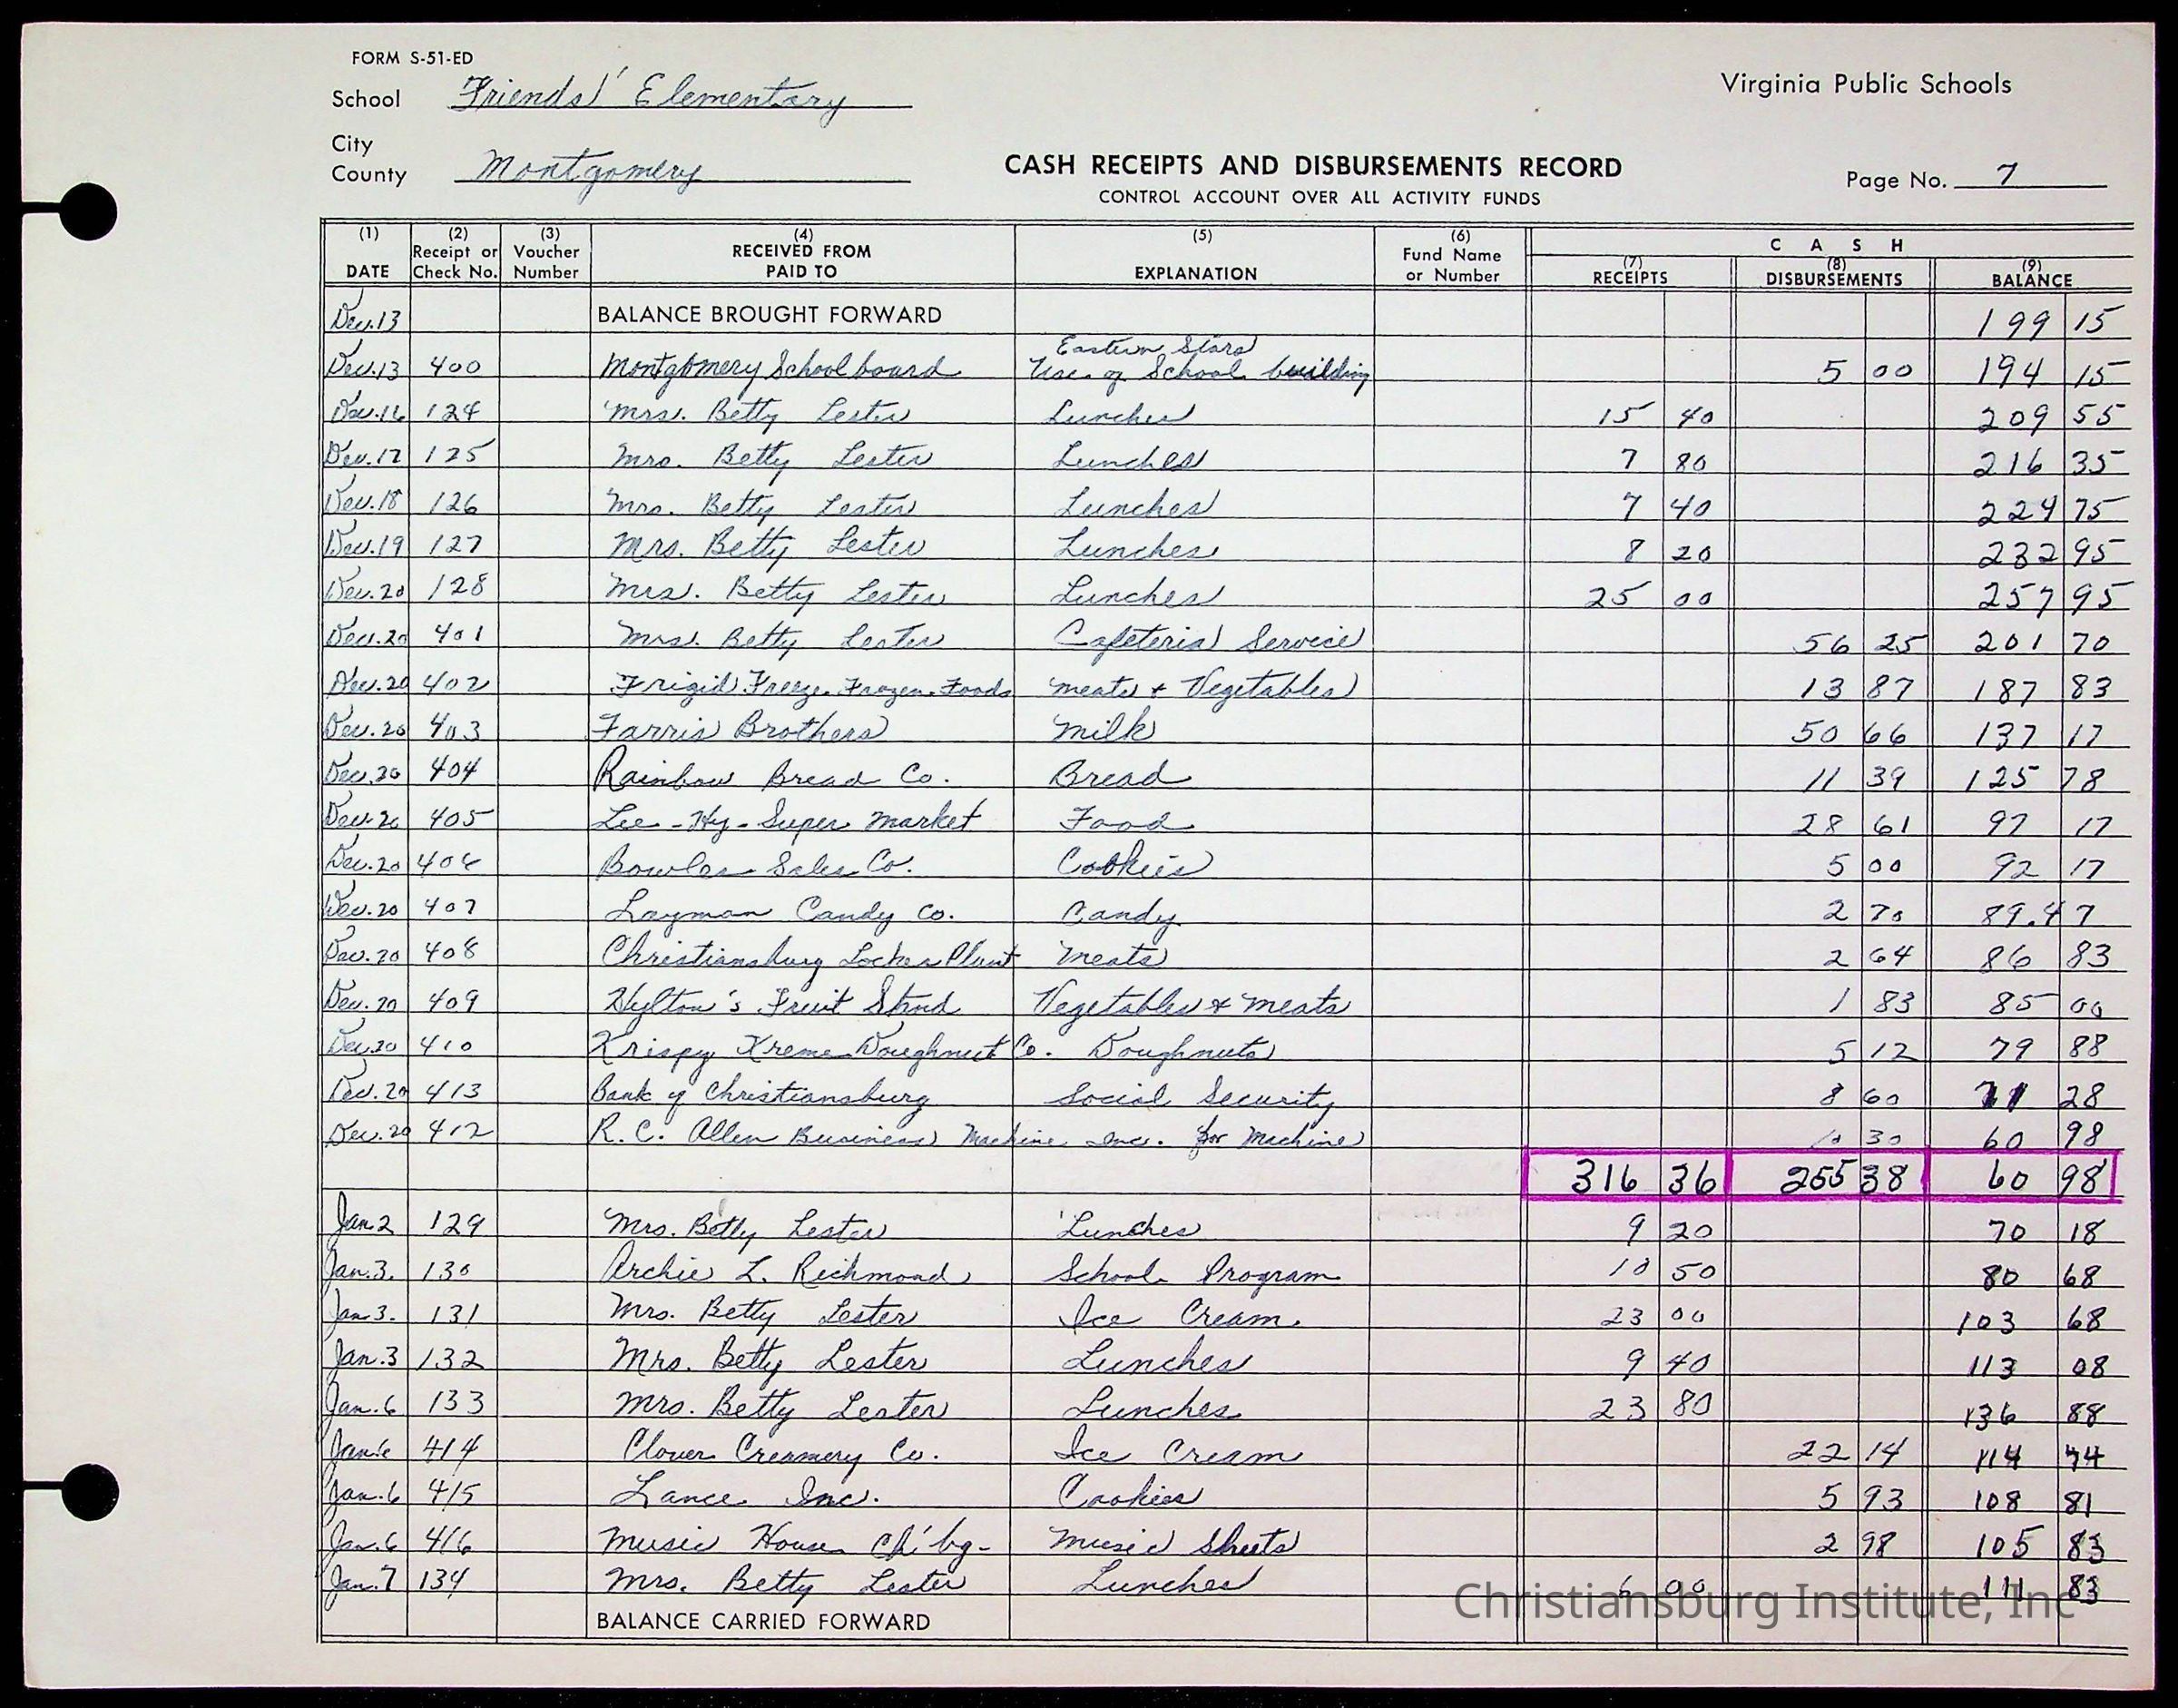 FORM S-51-ED
School Friends' Elementary
Virginia Public Schools
City
County Montgomery
CASH RECEIPTS AND DISBURSEMENTS RECORD
Page No. 7
CONTROL ACCOUNT OVER ALL ACTIVITY FUNDS
(1) DATE (2) Receipt or Check No. (3) Voucher Number (4) RECEIVED FROM PAID TO (5) EXPLANATION (6) Fund Name or Number CASH (7) RECEIPTS (8) DISBURSEMENTS (9) BALANCE
Dec.13 BALANCE BROUGHT FORWARD 199 15
Dec.13 400 Montgomery School board Eastern Stars Use of School building 5 00 194 15
Dec.16 124 Mrs. Betty Lester Lunches 15 40 209 55
Dec.17 125 Mrs. Betty Lester Lunches 7 80 216 35
Dec.18 126 Mrs. Betty Lester Lunches 7 40 224 75
Dec.19 127 Mrs. Betty Lester Lunches 8 20 232 95
Dec.20 128 Mrs. Betty Lester Lunches 25 00 257 95
Dec.20 401 Mrs. Betty Lester Cafeteria Service 56 25 201 70
Dec.20 402 Frigid Freeze Frozen Foods Meats + Vegetables 13 87 187 83
Dec.20 403 Farris Brothers Milk 50 66 137 17
Dec.20 404 Rainbow Bread Co. Bread 11 39 125 78
Dec.20 405 Lee-Hy-Super Market Food 28 61 97 17
Dec.20 406 Bowles Sales Co. Cookies 5 00 92 17
Dec.20 407 Layman Candy Co. Candy 2 70 89.47
Dec.20 408 Christiansburg Locker Plant Meats 2 64 86 83
Dec.20 409 Hylton's Fruit Stand Vegetables + Meats 1 83 85 00
Dec.20 410 Krispy Kreme Doughnut Co. Doughnuts 5 12 79 88
Dec.20 413 Bank of Christiansburg Social Security 8 60 71 28
Dec.20 412 R.C. Allen Business Machine Inc. for Machine 10 30 60 98
316 36 255 38 60 98
Jan.2 129 Mrs. Betty Lester Lunches 9 20 70 18
Jan.3. 130 Archie L. Richmond School Program 10 50 80 68
Jan 3. 131 Mrs. Betty Lester Ice Cream 23 00 103 68
Jan.3 132 Mrs. Betty Lester Lunches 9 40 113 08
Jan.6 133 Mrs. Betty Lester Lunches 23 80 136 88
Jan.6 414 Clover Creamery Co. Ice Cream 22 14 114 74
Jan.6 415 Lance Inc. Cookies 5 93 108 81
Jan.6 416 Music House Ch'bg- Music Sheets 2 98 105 83
Jan.7 134 Mrs. Betty Lester Lunches 6 00 111 83
BALANCE CARRIED FORWARD
Christiansburg Institute, Inc